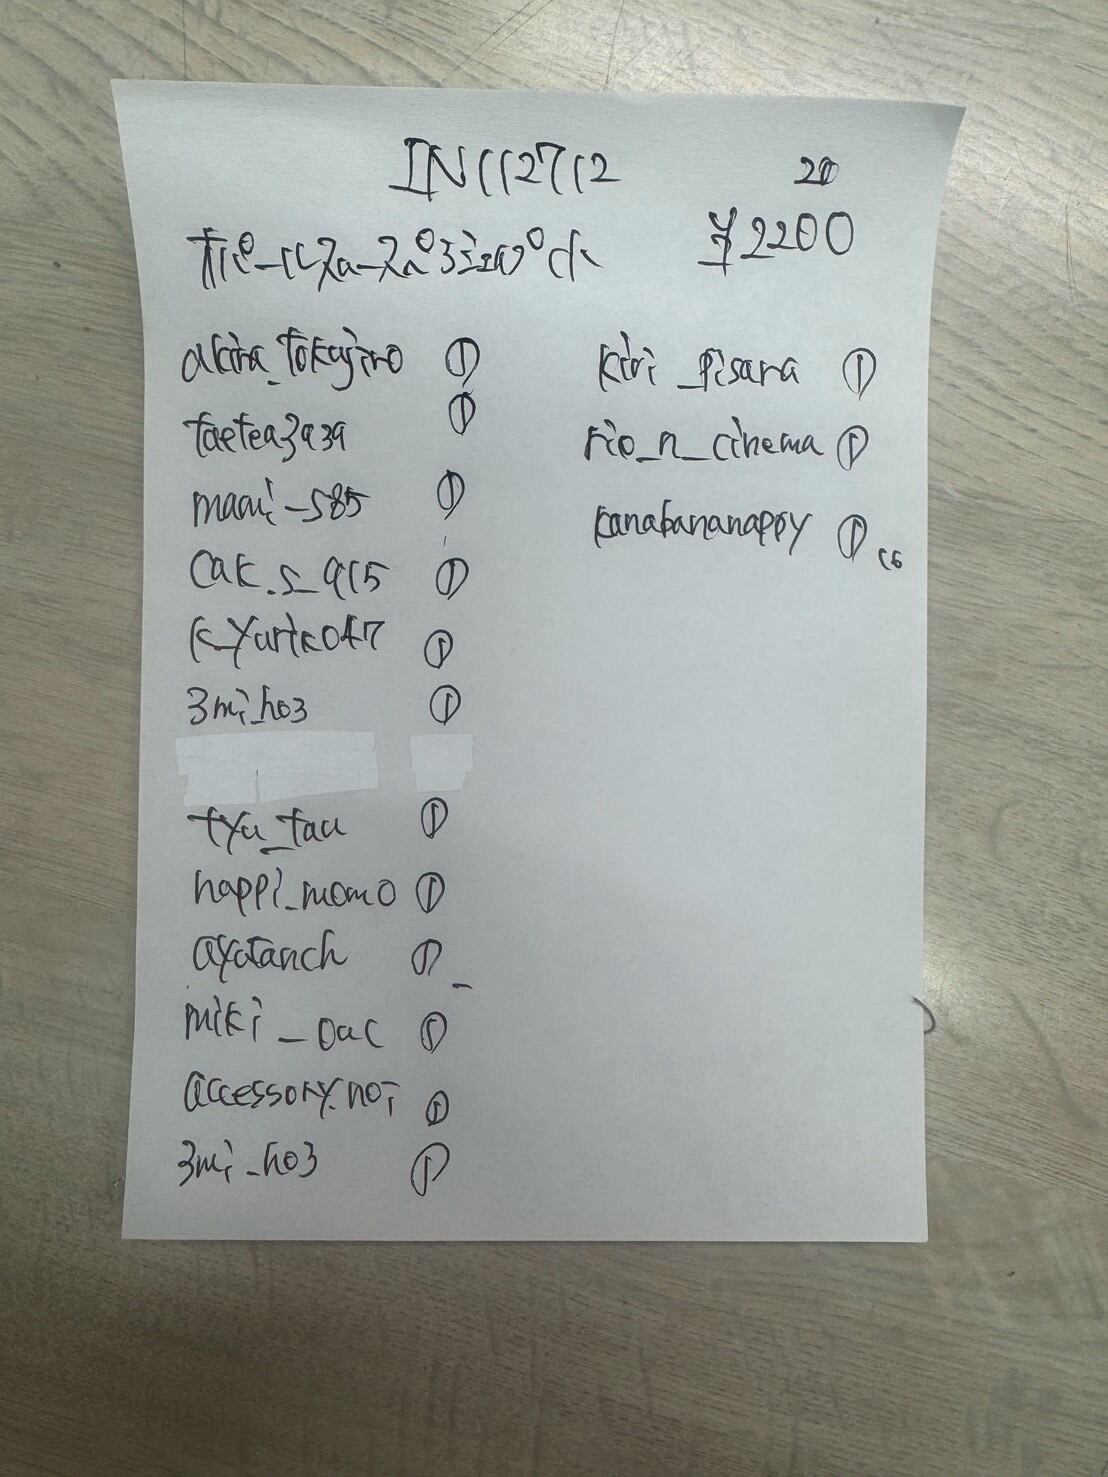 IN112712
20
¥2200
akira_tokujiro ①
taetea3a39 ①
mami_585 ①
cak.s_915 ①
k_yuriko47 ①
3mi_ho3 ①
tyu_tau ①
happi_momo ①
ayatanch ①
miki_oac ①
accessory.noi ①
3mi_ho3 ①
kiri_pisara ①
rio_n_cinema ①
kanabananappy ①
16